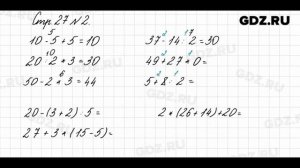 GDZ.RU
Стр. 27 № 2.
5
10 : 5 + 5 = 10
2
20 : 10 · 2 · 3 = 30
6
50 - 2 · 3 = 44
20 - (3 + 2) · 5 =
27 + 3 * (15 - 5) =
2 1 7
37 - 14 : 2 = 30
49 + 27 * 0 =
5 + 8 : 2 =
2 * (26 + 14) + 20 =
GDZ.RU